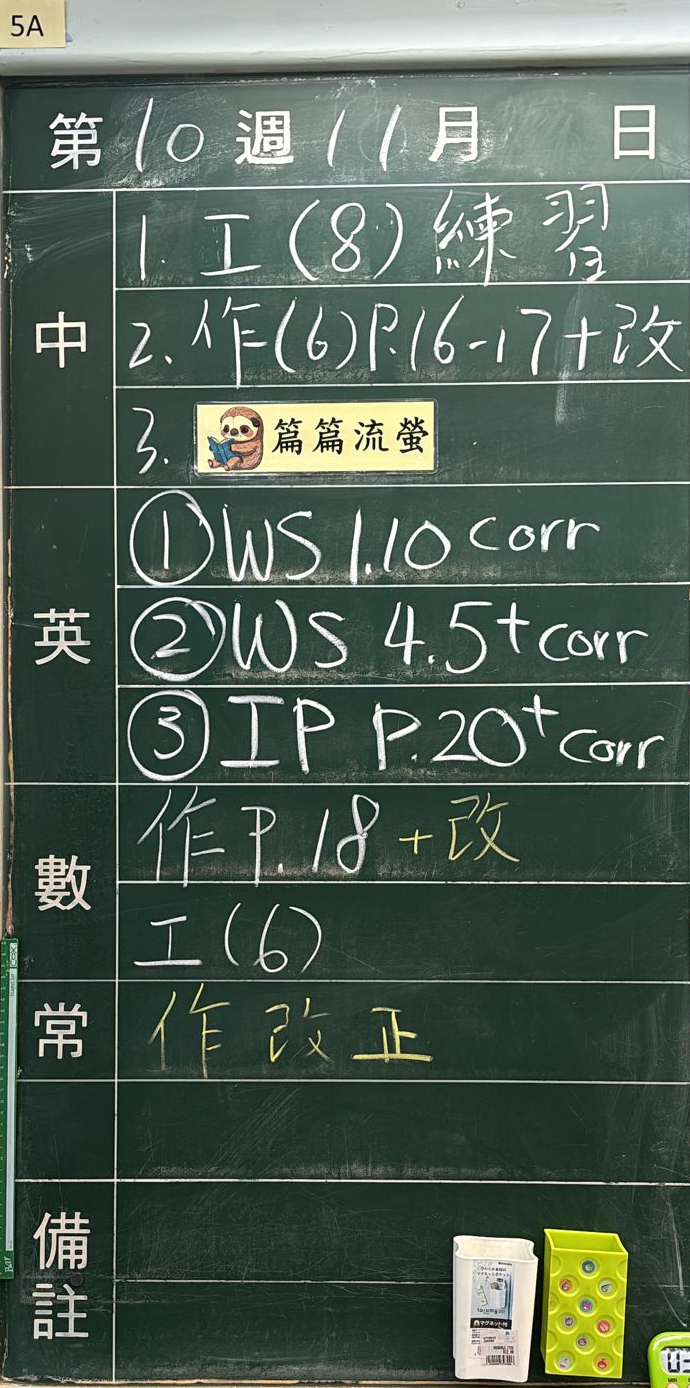 5A
第10週 11月 日
中
1. 工(8)練習
2. 作(6)P.16-17+改
3. 篇篇流螢
英
①WS 1.10 corr
②WS 4.5+corr
③IP P.20+corr
數
作P.18+改
工(6)
常
作改正
備註
マグネット付